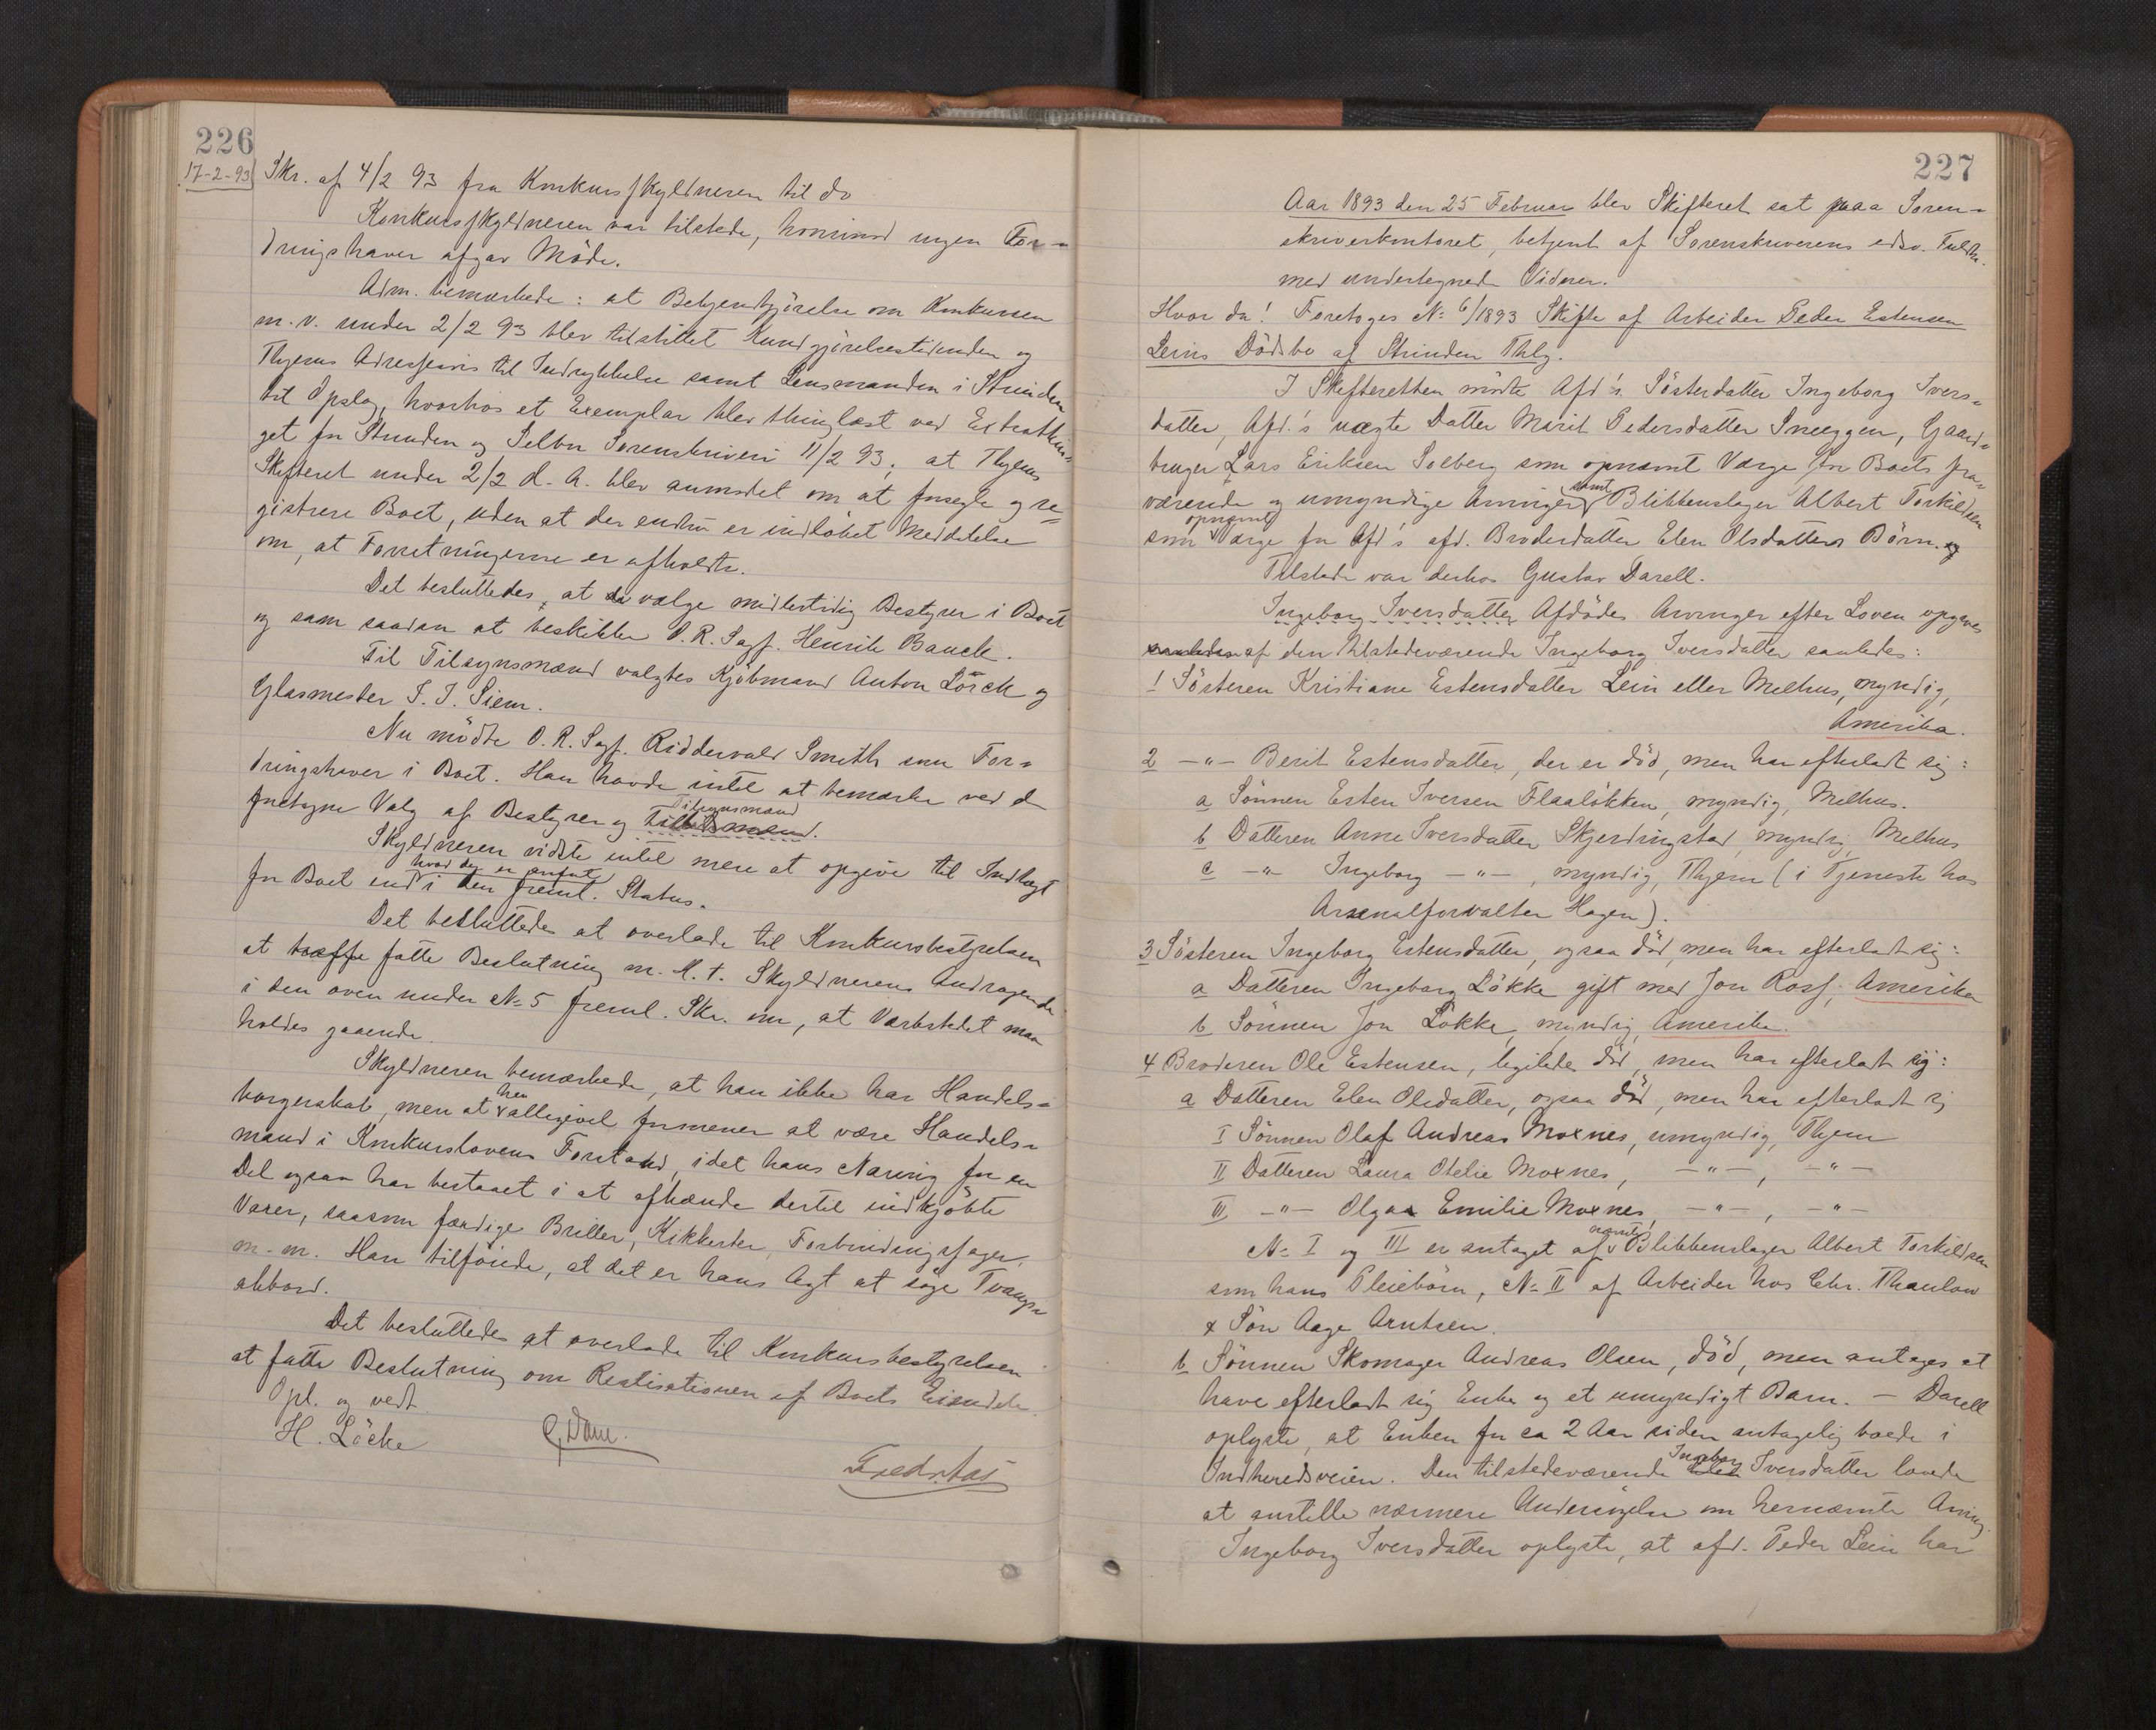 226
17-2-93
Skr. af 4/2 93 fra Konkursskyldneren til do
Konkursskyldneren var tilstede, hvorimod ingen For-
dringshaver afgav Möde.
Adm. bemærkede: at Bekjendtgjörelse om Konkursen
m.v. under 2/2 93 blev tilstillet Kundgjörelsestidenden og
Thjems Adresseavis til Indrykkelse samt Lensmanden i Strinden
til Opslag, hvorhos et Exemplar blev thinglæst ved Extrathin-
get for Strinden og Selbu Sorenskriveri 11/2 93; at Thjems
Skifteret under 2/2 d. A. blev anmodet om at forsegle og re-
gistrere Boet, uden at der endnu er indlöbet Meddelelse
om, at Forretningerne er afholdte.
Det besluttedes, at vælge midlertidig Bestyrer i Boet
og som saadan at beskikke O.R. Sagf. Henrik Bauck.
Til Tilsynsmænd valgtes Kjöbmand Anton Lörck og
Glasmester I. I. Siem.
Nu mödte O.R. Sagf. Riddervold Smith som For-
dringshaver i Boet. Han havde intet at bemærke ved d
foretagne Valg af Bestyrer og Tilsynsmænd.
Skyldneren vidste intet mere at opgive til Indtægt
for Boet end hvad der er anfört i den freml. Status.
Det besluttedes at overlade til Konkursbestyrelsen
at træffe fatte Beslutning m. H. t. Skyldnerens Andragende
i den oven under No 5 freml. Skr. om, at Værkstedet maa
holdes gaaende.
Skyldneren bemærkede, at han ikke har Handels-
borgerskab, men at han alligevel formener at være Handels-
mand i Konkurslovens Forstand, idet hans Næring for en
Del ogsaa har bestaaet i at afhænde dertil indkjöbte
Varer, saasom færdige Briller, Kikkerter, Forbindingssager,
m.m. Han tilföiede, at det er hans Agt at söge Tvangs-
akkord.
Det besluttedes at overlade til Konkursbestyrelsen
at fatte Beslutning om Realisationen af Boets Eiendele.
Opl. og vedt.
H. Löcke
227
Aar 1893 den 25 Februar blev Skifteret sat paa Soren-
skriverkontoret, betjent af Sorenskriverens edsv. Fuldm.
med undertegnede Vidner.
Hvor da! Foretoges No 6/1893 Skifte af Arbeider Peder Estensen
Leins Dödsbo af Strinden Thlg.
I Skifteretten mödte Afd's Sösterdatter Ingeborg Ivers-
datter, Afd.'s uægte Datter Marit Pedersdatter Sneeggen, Gaard-
bruger Lars Eriksen Solberg som opnævnt Værge for Boets fra-
værende og umyndige Arvinger samt Blikkenslager Albert Torkildsen
som opnævnt Værge for Afd's afd. Broderdatter Elen Olsdatters Börn.
Tilstede var derhos Gustav Darell.
Ingeborg Iversdatter Afdödes Arvinger efter Loven opgaves
saaledes af den tilstedeværende Ingeborg Iversdatter saaledes:
1 Sösteren Kristiane Estensdatter Lein eller Melhus, myndig,
Amerika.
2 -"- Berit Estensdatter, der er död, men har efterladt sig:
a Sönnen Esten Iversen Flaalökken, myndig, Melhus.
b Datteren Anne Iversdatter Skjerdingstad, myndig, Melhus
c -"- Ingeborg -"-, myndig, Thjem (i Tjeneste hos
Arsenalforvalter Hagen).
3 Sösteren Ingeborg Estensdatter, ogsaa död, men har efterladt sig:
a Datteren Ingeborg Lökke gift med Jon Ross, Amerika
b Sönnen Jon Lökke, myndig, Amerika.
4 Broderen Ole Estensen, ligeledes död, men har efterladt sig:
a Datteren Elen Olsdatter, ogsaa död, men har efterladt sig
I Sönnen Olaf Andreas Moxnes, umyndig, Thjem
II Datteren Laura Otelie Moxnes, -"-, -"-
III -"- Olga Emilie Moxnes, -"-, -"-
No I og III er antaget af nævnte Blikkenslager Albert Torkildsen
som hans Pleiebörn, No II af Arbeider hos Chr. Thaulow
& Sön Aage Arntsen.
b Sönnen Skomager Andreas Olsen, död, men antages at
have efterladt sig Enke og et umyndigt Barn. - Darell
oplyste, at Enken for ca 2 Aar siden antagelig boede i
Indherredsveien. Den tilstedeværende Ingeborg Iversdatter lovede
at anstille nærmere Undersögelse om hernævnte Arving.
Ingeborg Iversdatter oplyste, at afd. Peder Lein har